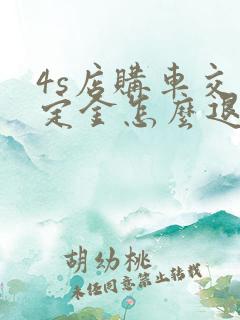 4s店購車交
定金怎麼退
胡幼桃
未经同意禁止转载